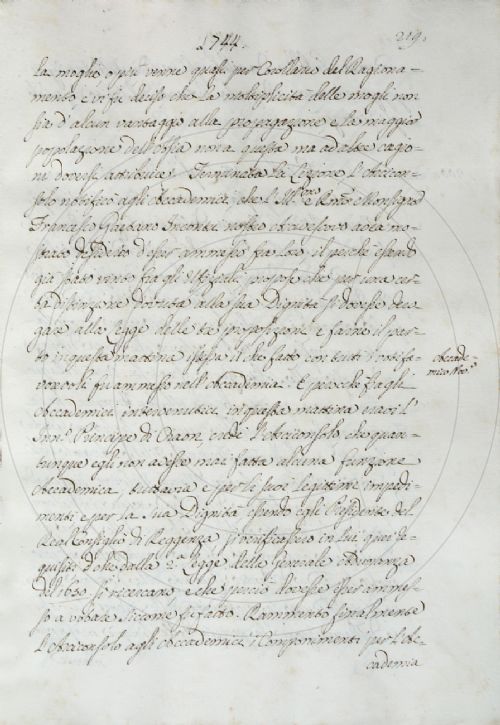 1744.
219.
La moglie o più venne quasi per Corollario del Ragiona=
mento e vi fu deciso che La moltiplicità delle mogli non
sia d'alcun vantaggio alla propagazione e la maggior
popolazione dell'Asia non a questa ma ad altre cagio=
ni doversi attribuire. Terminata La Lezione l'Arcicon=
solo notificò agli Accademici, che l'Ill.mo e Rev.mo Monsignor
Francesco Gaetano Incontri nostro Arcivescovo avea mo=
strato desiderio d'esser ammesso fra loro il perchè essendo
già stato vinto fra gli Ufiziali, propose che per una cer=
ta distinzione dovuta alla sua Dignità si dovesse dero=
gare alla legge delle tre proposizioni e farne il par=
to in questa mattina istessa il che fatto con tutti i voti fa=
vorevoli fu ammesso nell'Accademia. E perchè fra gli
Accade=
mico Nov.o
Accademici intervenutici in questa mattina eravi l'
Principe di Craon, l'Arciconsolo che quan=
tunque egli non avesse mai fatta alcuna funzione
Accademica, tuttavia e per le sue legittime impedi=
menti e per la sua Dignità essendo egli Presidente del
Real Consiglio di Reggenza si verificassero in lui quei re=
quisiti che dalla 2.a Legge della Generale Adunanza
del 1650 si ricercano, e che perciò dovesse esser ammes=
so a votare siccome fu fatto. Rammentò finalmente
L'Arciconsolo agli Accademici i Componimenti per l'Ac=
cademia